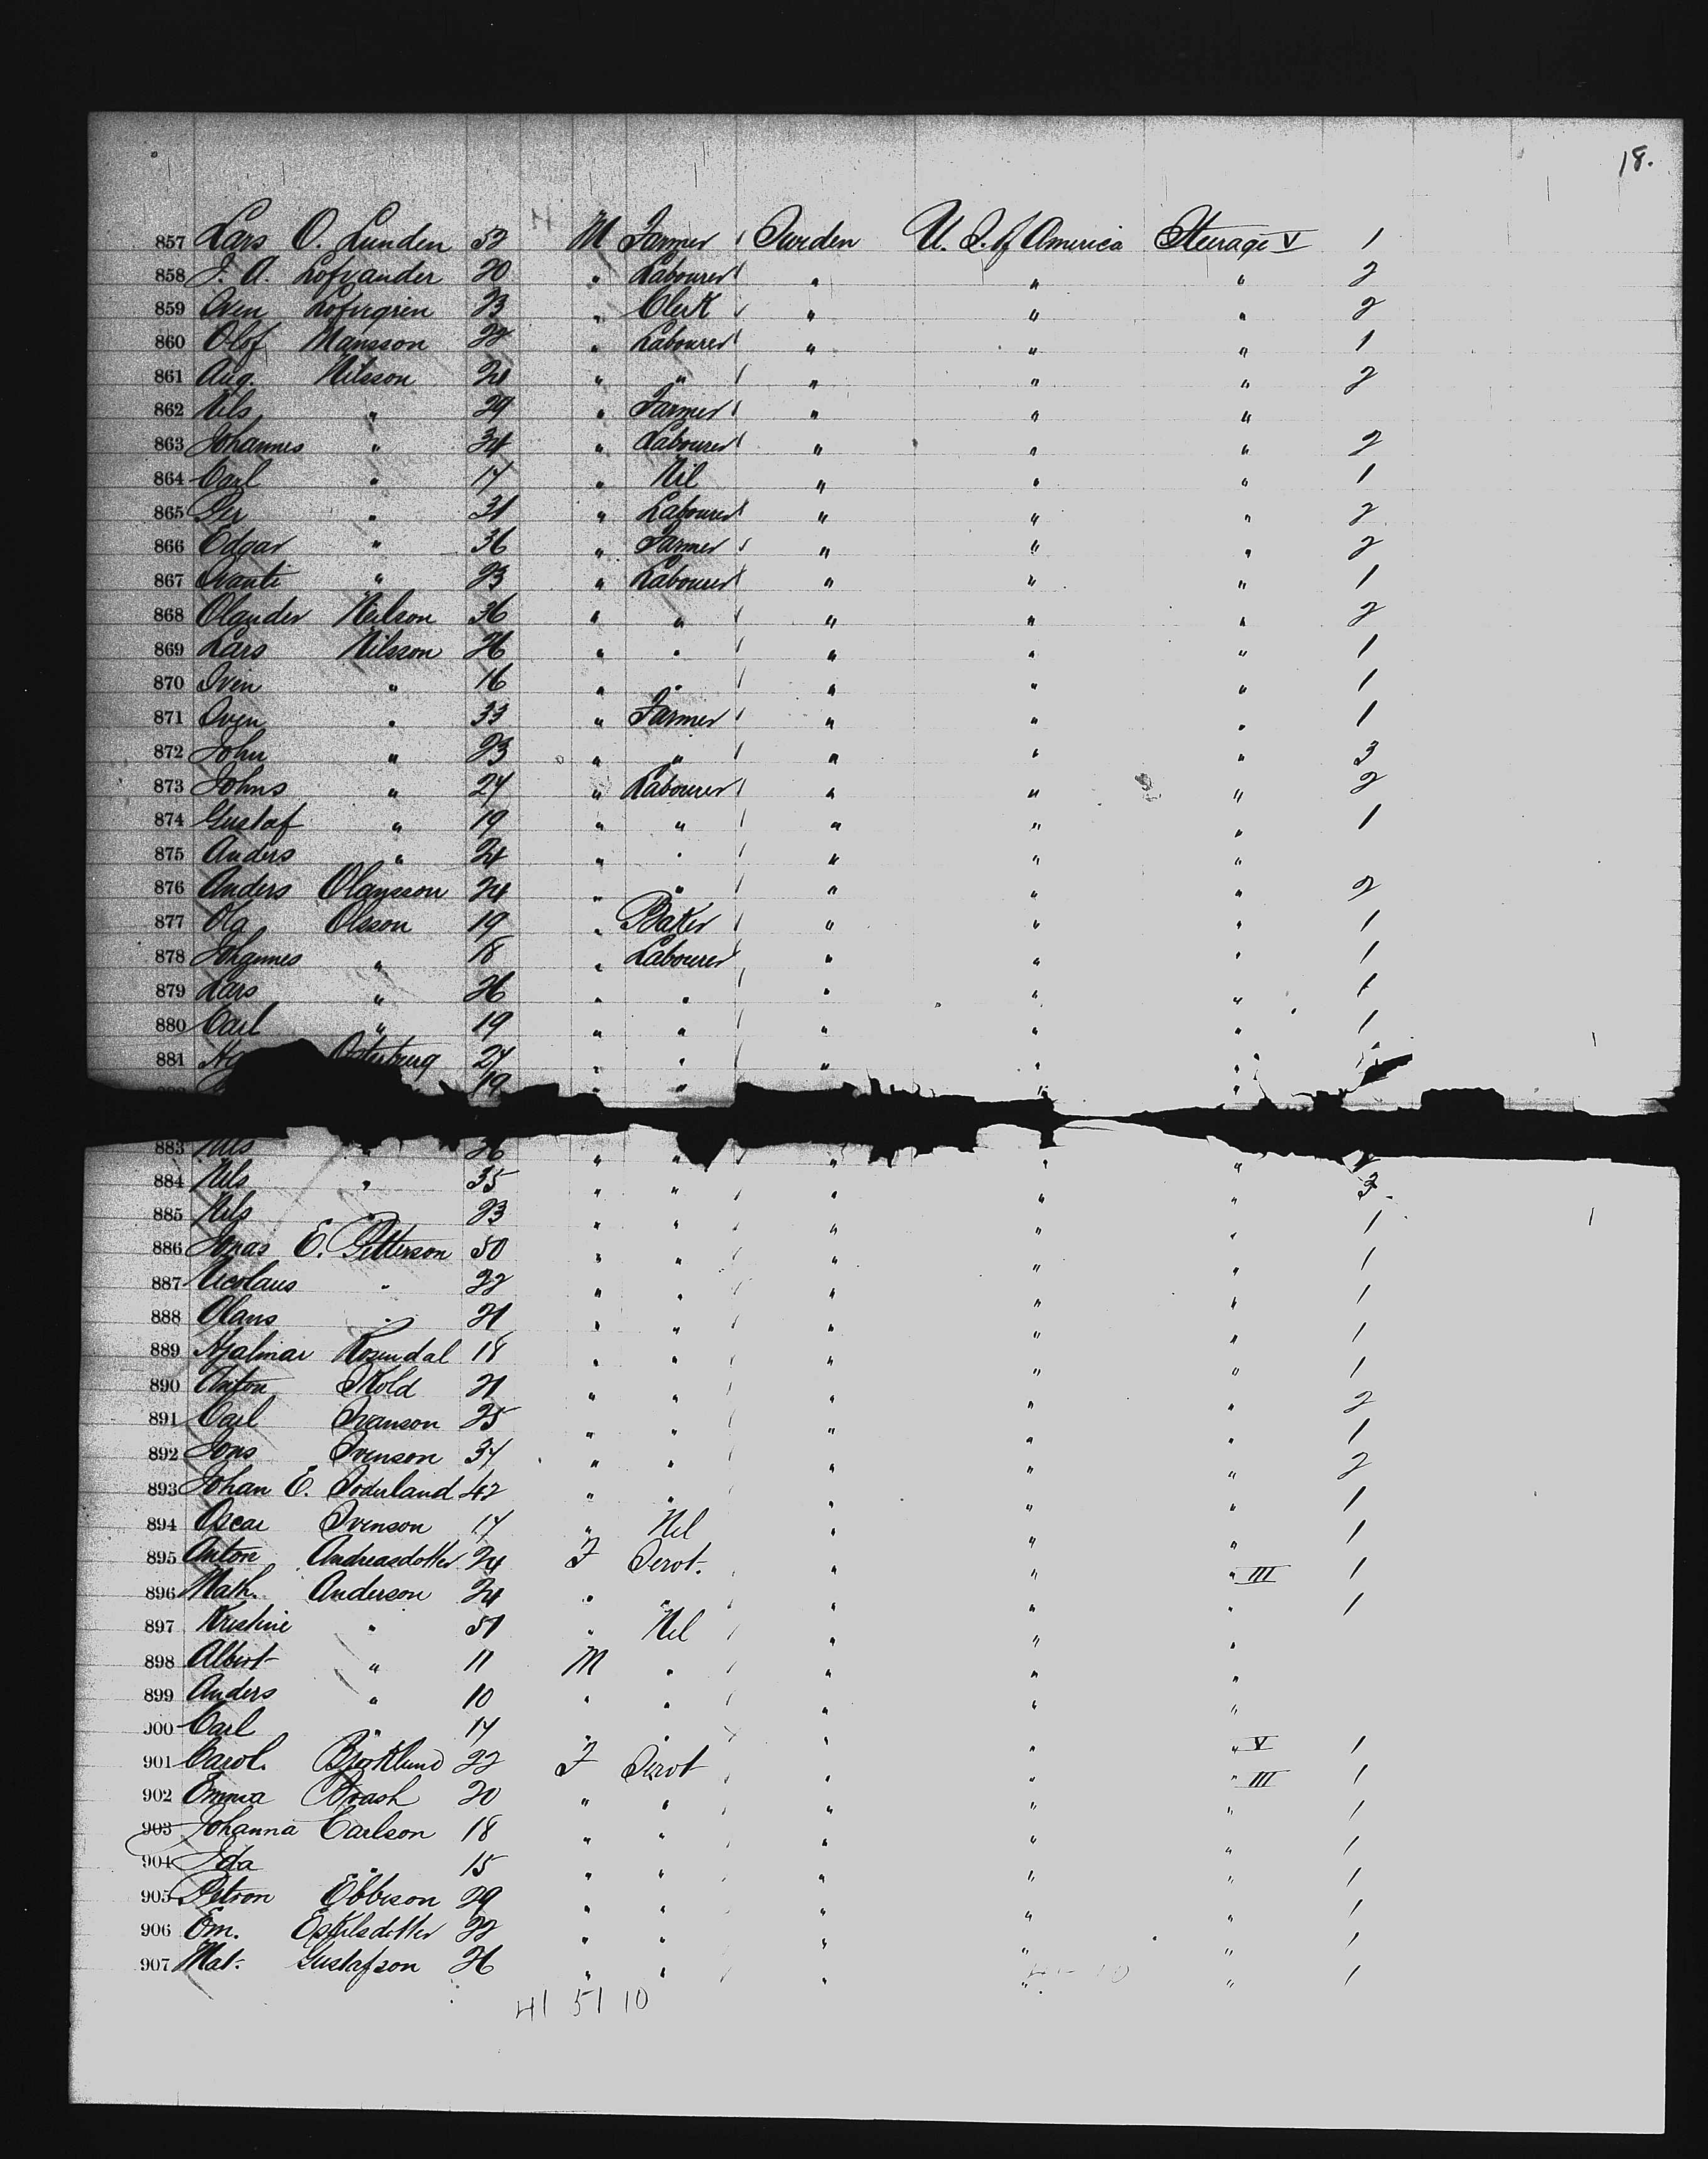 18.
857 Lars O. Lunden 52 M Farmer Sweden U. S. of America Steerage V 1
858 J. A. Lofvander 20 " Labourer " " " 2
859 Sven Lofvegren 23 " Clerk " " " 2
860 Olof Mansson 22 " Labourer " " " 1
861 Aug. Nilsson 21 " " " " " 2
862 Nils " 29 " Farmer " " "
863 Johannes " 34 " Labourer " " " 2
864 Carl " 17 " Nil " " " 1
865 Per " 31 " Labourer " " " 2
866 Edgar " 36 " Farmer " " " 2
867 Svante " 23 " Labourer " " " 1
868 Olander Neilson 36 " " " " " 2
869 Lars Nilsson 26 " " " " " 1
870 Sven " 16 " " " " " 1
871 Sven " 33 " Farmer " " " 1
872 John " 23 " " " " " 3
873 Johns " 27 " Labourer " " " 2
874 Gustaf " 19 " " " " " 1
875 Anders " 24 " " " " "
876 Anders Olansson 24 " " " " " 2
877 Ola Olsson 19 " Baker " " " 1
878 Johannes " 18 " Labourer " " " 1
879 Lars " 26 " " " " " 1
880 Carl " 19 " " " " " 1
881 Osterburg 27 " " " " "
19 " " " "
883 Nils " 26 " " " " "
884 Nils " 35 " " " " " 3
885 Nils " 23 " " " " " 1
886 Jonas E. Petterson 50 " " " " " 1
887 Nicolaus " 22 " " " " " 1
888 Olans " 21 " " " " " 1
889 Hjalmar Rosendal 18 " " " " " 1
890 Anton Skold 21 " " " " " 2
891 Carl Svanson 25 " " " " " 1
892 Jons Svenson 37 " " " " " 2
893 Johan E. Soderland 42 " " " " " 1
894 Oscar Svenson 17 " Nil " " " 1
895 Anton Andreasdotter 24 F Servt. " " " III 1
896 Math. Anderson 24 " " " " " 1
897 Kristine " 51 " Nil " " "
898 Albert " 11 M " " " "
899 Anders " 10 " " " " "
900 Carl " 17 " " " " " V 1
901 Carol. Bjorklund 22 F Servt " " " III 1
902 Emma Brash 20 " " " " " 1
903 Johanna Carlson 18 " " " " " 1
904 Ida " 15 " " " " " 1
905 Petron Ebbeson 29 " " " " " 1
906 Em. Eskilsdotter 22 " " " " " 1
907 Mat. Gustafson 26 " " " " " 1
41 51 10